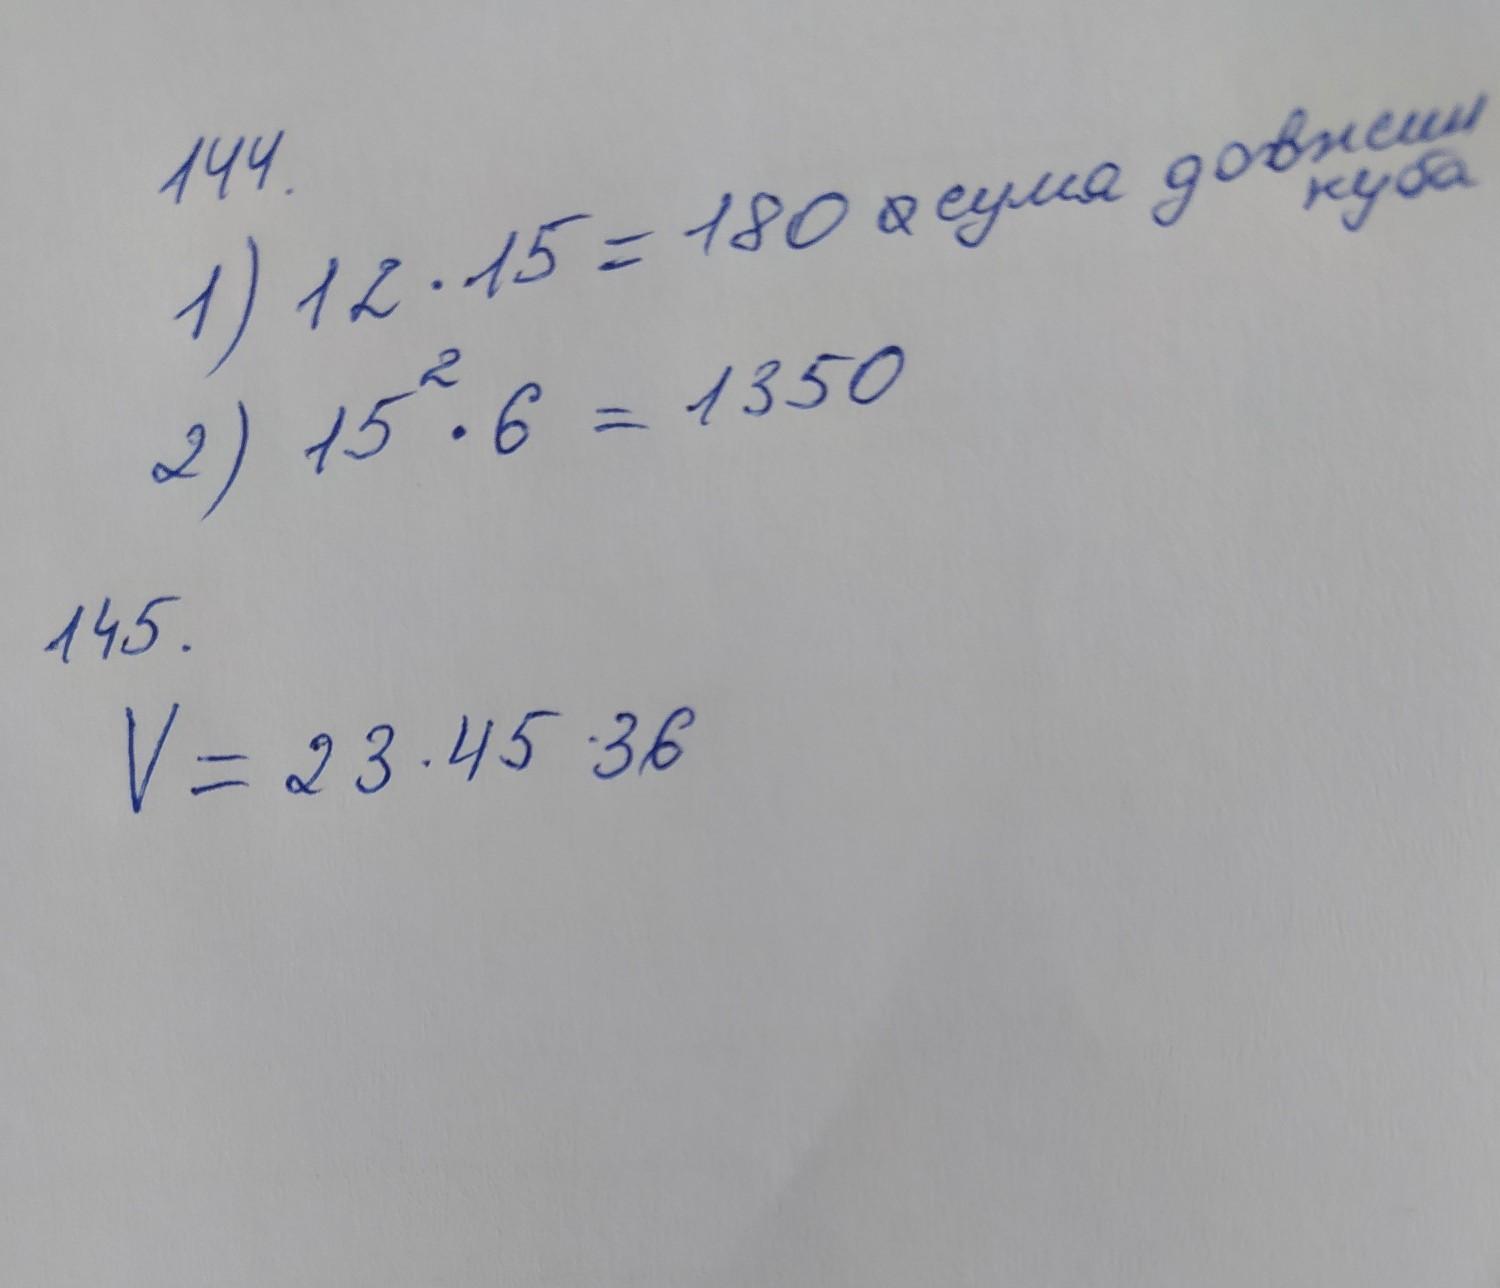 144.
1) 12 · 15 = 180 сума довжин
куба
2) 15² · 6 = 1350
145.
V = 23 · 45 · 36